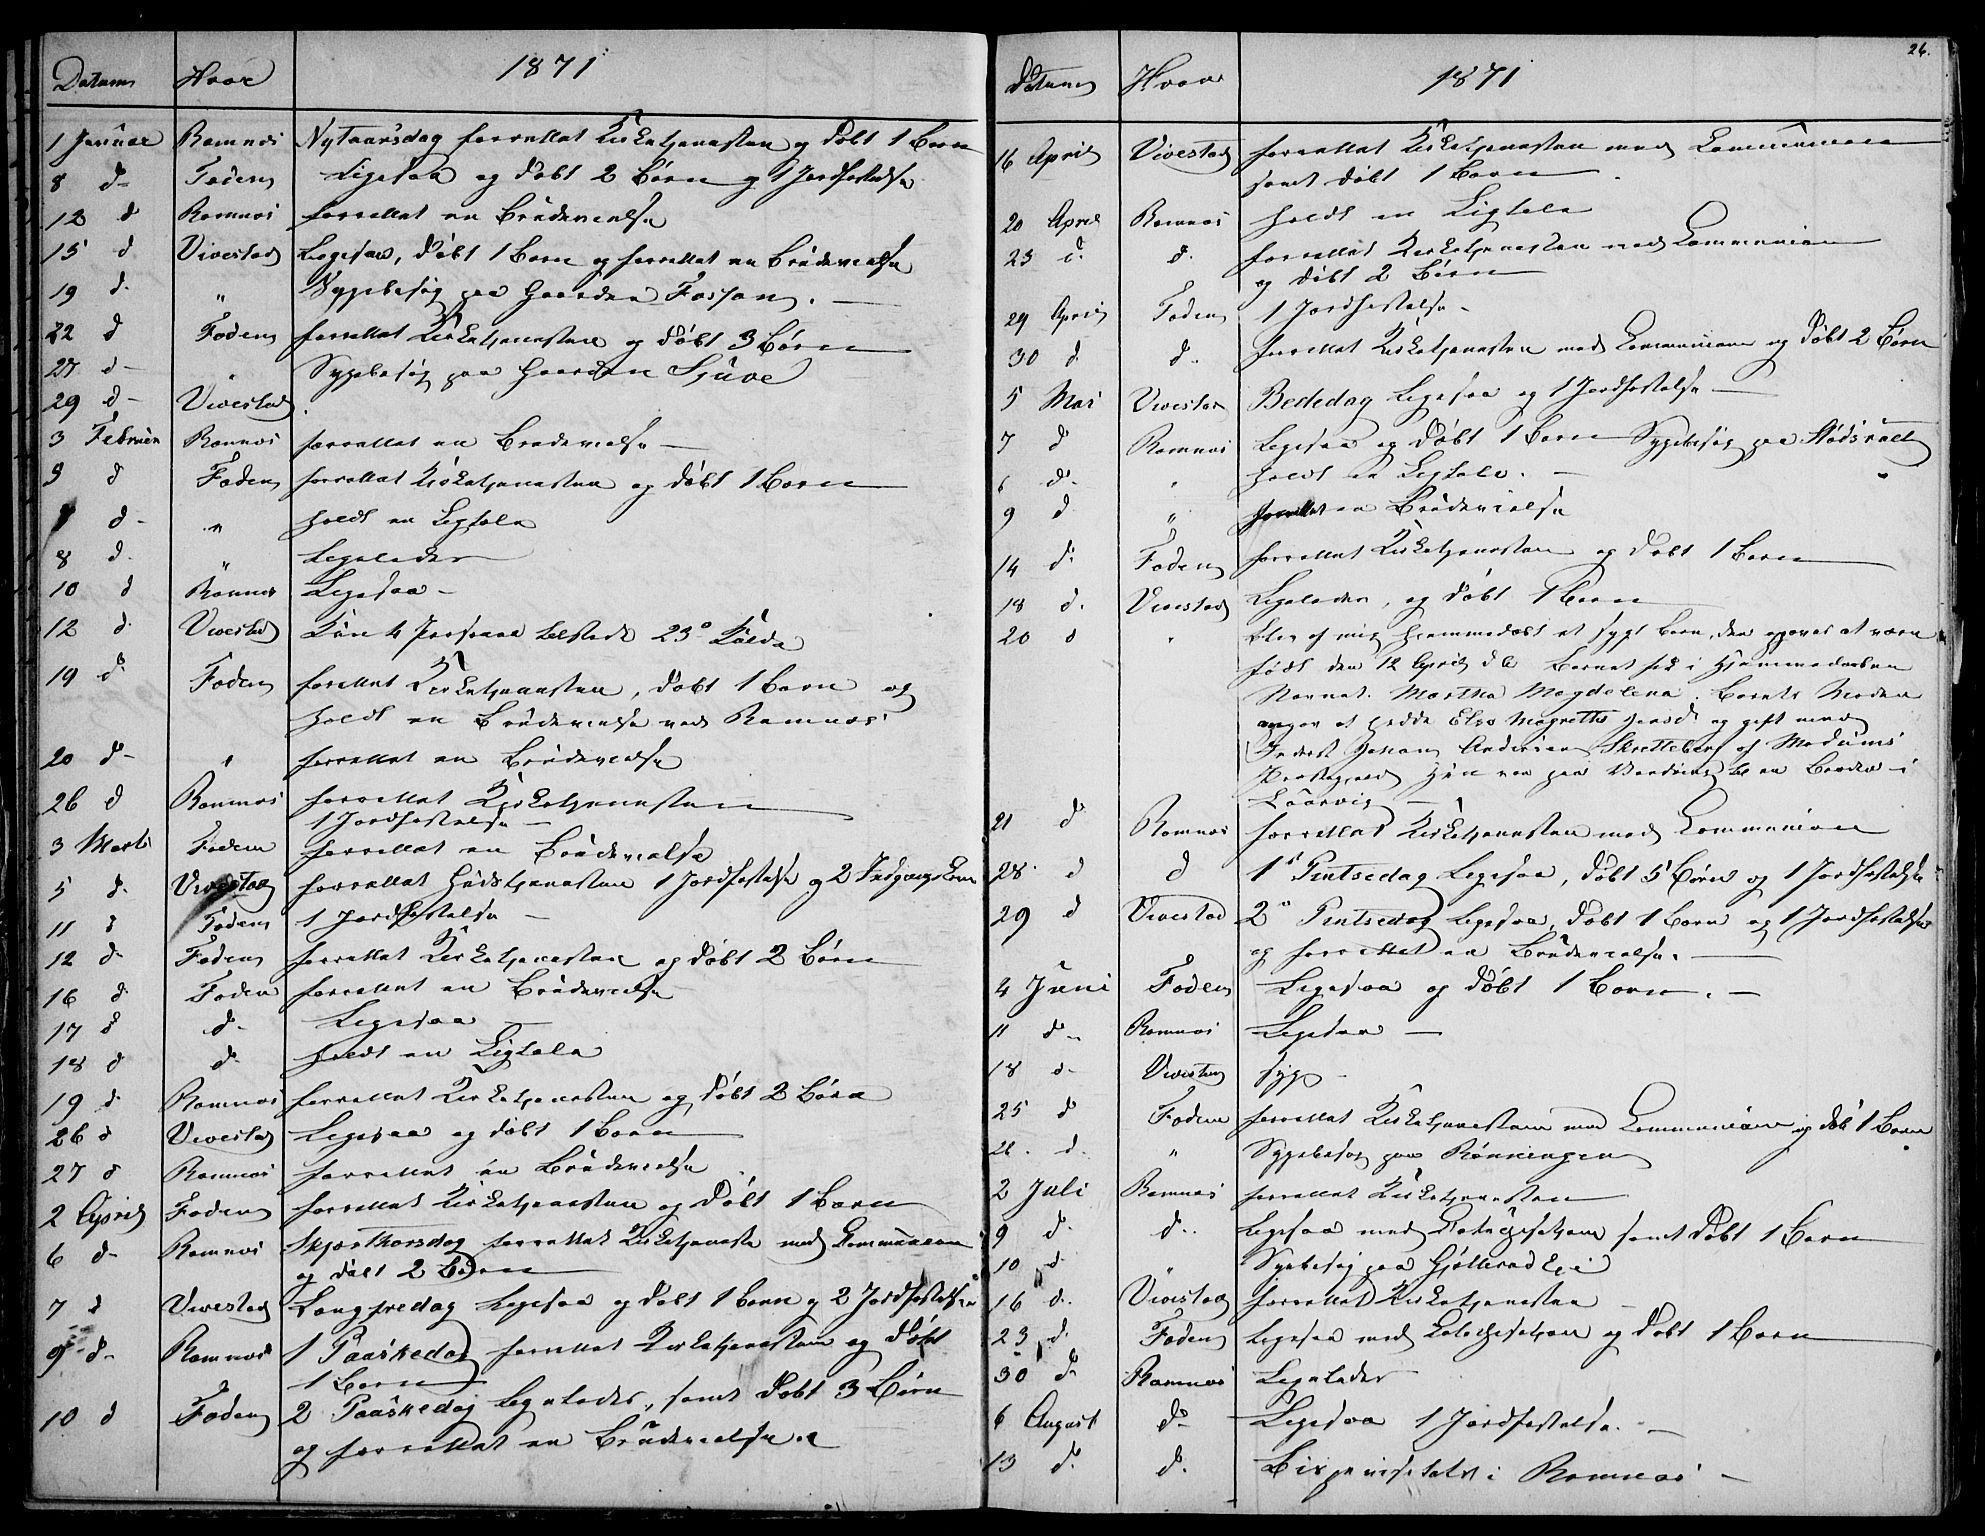 Datum Hvor 1871
1 Januar Ramnæs Nytaarsdag forrettet Kirketjenesten og døbt 1 Barn
8 d- Foden Ligesaa og døbt 2 Børn og 1 Jordfæstelse
12 d Ramnæs forrettet en Brudevielse
15 d Vivestad Ligesaa, døbt 1 Barn og forrettet en Brudevielse
19 d- " Sygebesøg paa Gaarden Fossan.
22 d Foden forrettet Kirketjenesten og døbt 3 Børn
27 d- " Sygebesøg paa Gaarden Sjue
29 d- Vivestad
3 Februar Ramnæs forrettet en Brudevielse
5 d Foden forrettet Kirketjenesten og døbt 1 Barn
d- " holdt en Ligtale
8 d. " Ligeledes
10 d Ramnæs Ligesaa -
12 d. Vivestad Kun 4 Personer tilstede 23° Kulde
19 d- Foden forrettet Kirketjenesten, døbt 1 Barn og
holdt en Brudevielse ved Ramnæs
20 d- " forrettet en Brudevielse
26 d Ramnæs forrettet Kirketjenesten
1 Jordfæstelse -
3 Marts Foden forrettet en Brudevielse
5 d. Vivestad forrettet Gudstjenesten 1 Jordfæstelse og 2 Indgangskoner
11 d Foden 1 Jordfæstelse -
12 d- Foden forrettet Kirketjenesten og døbt 2 Børn
16 d Foden forrettet en Brudevielse
17 d d- Ligesaa -
18 d d- holdt en Ligtale
19 d Ramnæs forrettet Kirketjenesten og døbt 2 Børn
26 d Vivestad Ligesaa og døbt 1 Barn
27 d Ramnæs forrettet en Brudevielse
2 April Foden forrettet Kirketjenesten og døbt 1 Barn
6 d- Ramnæs Skjærthorsdag forrettet Kirketjeneste med Communion
og døbt 2 Børn
7 d Vivestad Langfredag Ligesaa og døbt 1 Barn og 2 Jordfæstelser
9 d- Ramnæs 1 Paaskedag forrettet Kirketjenesten og døbt
1 Barn
10 d Foden 2 Paaskedag Ligeledes, samt døbt 3 Børn
og forrettet en Brudevielse
26.
Datum Hvor 1871
16 April Vivestad forrettet Kirketjenesten med Communion
samt døbt 1 Barn
20 April Ramnæs holdt en Ligtale
23 d. d. forrettet Kirketjenesten med Communion
og døbt 2 Børn
29 April Foden 1 Jordfæstelse -
30 d d. forrettet Kirketjenesten med Communion og døbt 2 Børn
5 Mai Vivestad Bededag Ligesaa og 1 Jordfæstelse
7 d Ramnæs Ligesaa og døbt 1 Barn Sygebesøg paa
6 d- " holdt en Ligtale. -
9 d " forrettet en Brudevielse
14 d. Foden forrettet Kirketjenesten og døbt 1 Barn
18 d. Vivestad Ligeledes, og døbt 1 Barn
20 d " Blev af mig hjemmedøbt et sygt Barn, der opgives at være
født den 12 April d A Barnet fik i Hjemmedaaben
Navnet: Martha Magdelena. Barnets Moder
angav at hedde Else Magrethe og gift med
Inderst Johan Andersen Skretteberg af Modums
Præstegjeld Hun var paa Vandring til en Broder i
Laurvig -
21 d Ramnæs forrettet Kirketjenesten med Communion
28 d d 1s Pintsedag Ligesaa, døbt 5 Børn og 1 Jordfæstelse
29 d Vivestad 2n Pintsedag Ligesaa, døbt 1 Barn og 1 Jordfæstelse
og forrettet en Brudevielse. -
4 Juni Foden Ligesaa og døbt 1 Barn. -
11 d- Ramnæs Ligesaa -
18 d- Vivestad syg -
25 d Foden forrettet Kirketjenesten med Communion og døbt 1 Barn
26. d. " Sygebesøg paa Rønningen
2 Juli Ramnæs forrettet Kirketjenesten
9 d. d.. Ligesaa med Catechisation samt døbt 1 Barn
10 d. " Sygebesøg paa Eje
16 d. Vivestad forrettet Kirketjenesten
23 d. Foden Ligesaa med Catechisation og døbt 1 Barn
30 d- Ramnæs Ligeledes
6 August d- Ligesaa 1 Jordfæstelse. -
13 d. d. Bispevisitats i Ramnæs -